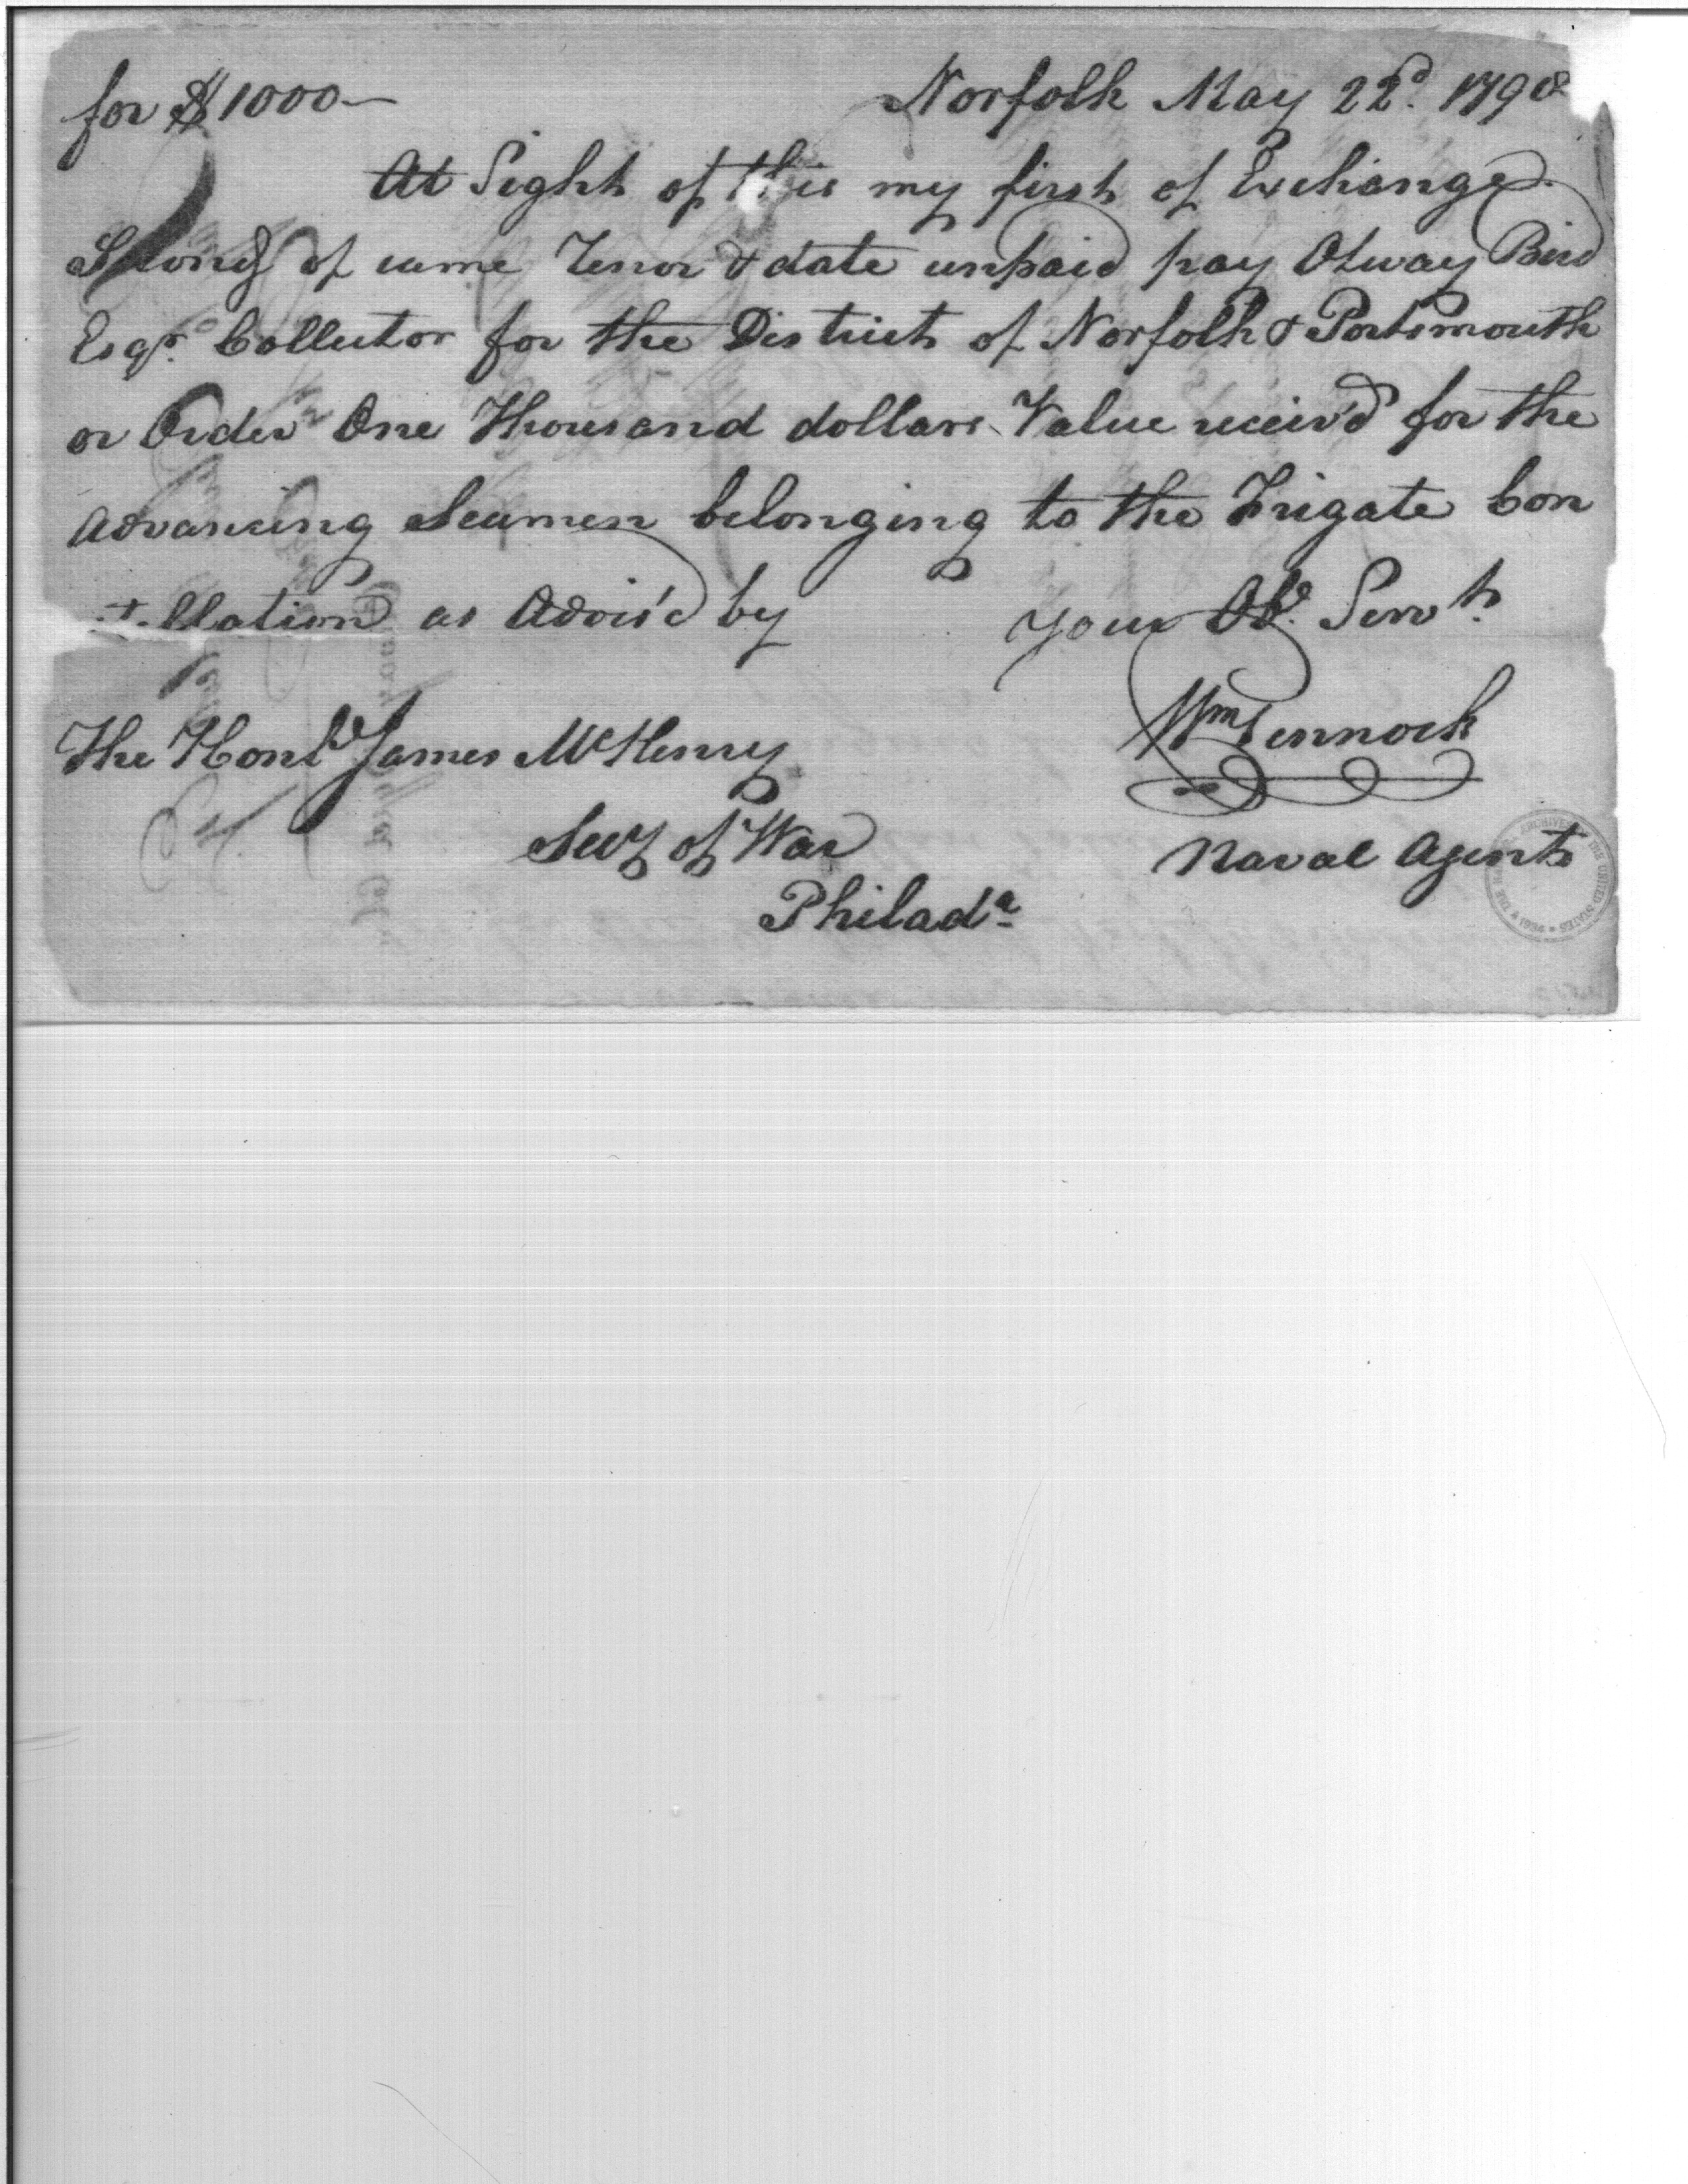 for $1000— Norfolk May 22d. 1798
At Sight of this my first of Exchange
Second of same Tenor & date unpaid pay Otway Bird
Esqr. Collector for the District of Norfolk & Portsmouth
or Order One Thousand dollars Value receiv'd for the
Advancing Seamen belonging to the Frigate Con
stellation as Advis'd by Your Ob. Servt.
Wm Pennock
The Honble James McHenry
Secy of War Naval Agent
Philada